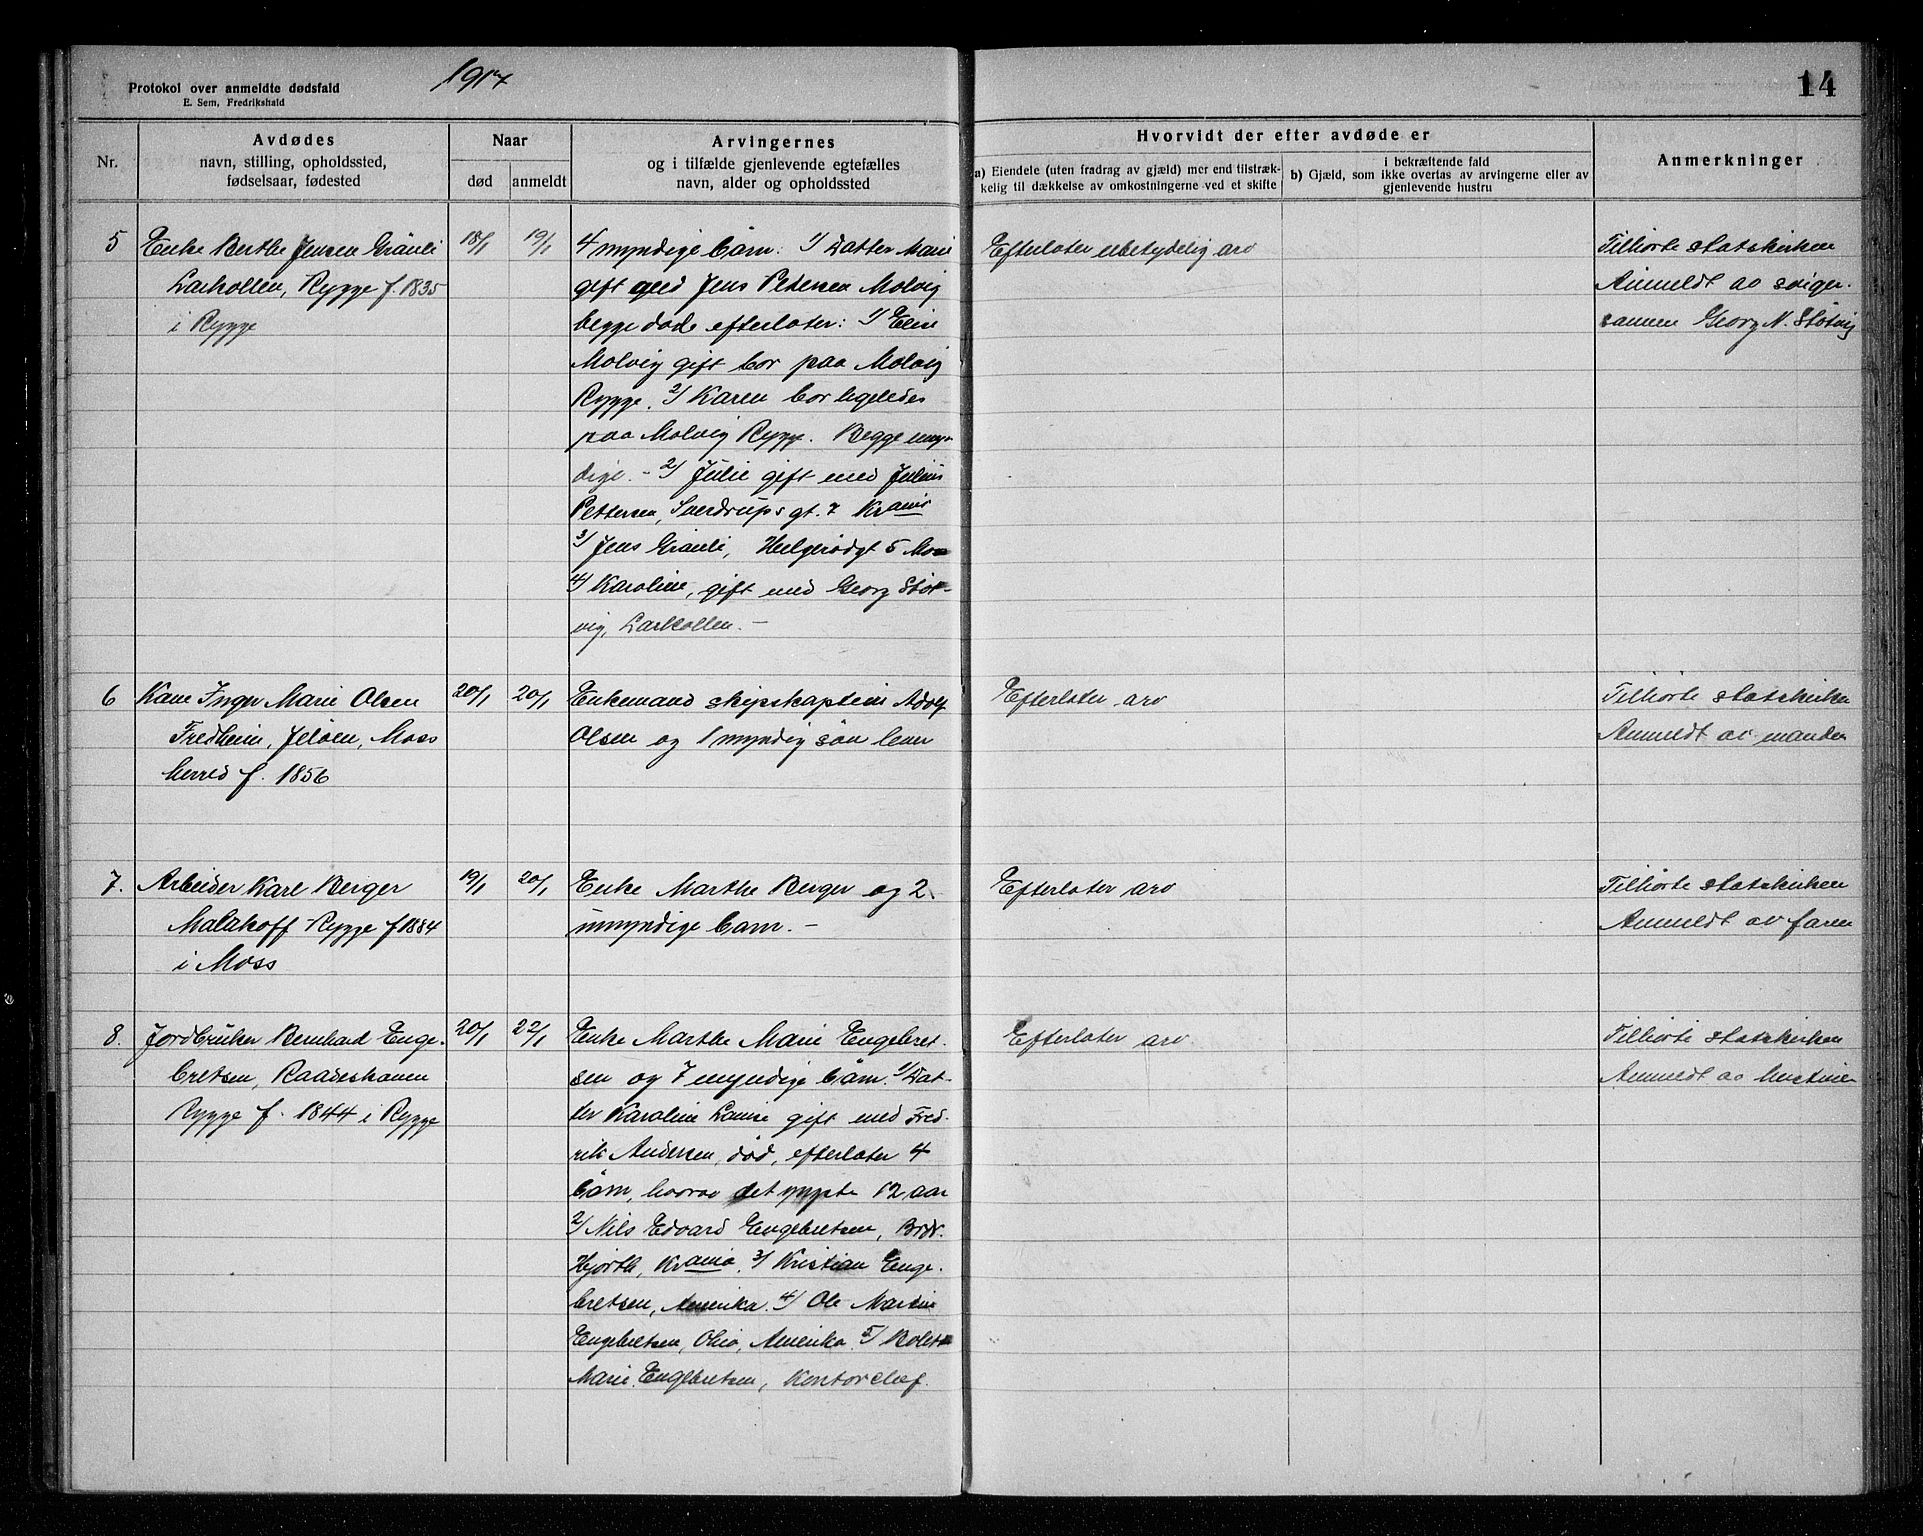 Protokol over anmeldte dødsfald
E. Sem, Fredrikshald
1917
14
Nr.
Avdødes
navn, stilling, opholdssted,
fødselsaar, fødested
Naar
død
anmeldt
Arvingernes
og i tilfælde gjenlevende egtefælles
navn, alder og opholdssted
Hvorvidt der efter avdøde er
a) Eiendele (uten fradrag av gjæld) mer end tilstræk-
kelig til dækkelse av omkostningerne ved et skifte
i bekræftende fald
b) Gjæld, som ikke overtas av arvingerne eller av
gjenlevende hustru
Anmerkninger
5
Enke Berthe Jensen Gråuli
Larkollen, Rygge f. 1835
i Rygge
18/1
19/1
4 myndige børn: 1/ Datter Marie
gift med Jens Petersen Molvig
begge døde efterlater: 1/ Elise
Molvig gift bor paa Molvig
Rygge. 2/ Karen bor ligeledes
paa Molvig Rygge. Begge myn-
dige. - 2/ Julie gift med Julius
Pettersen, Sverdrups gt. 7 Krania
3/ Jens Gråuli, Helgerødgt 5 Moss
4/ Karoline, gift med Georg Støt-
vig, Larkollen. -
Efterlater ubetydelig arv
Tilhørte statskirken
Anmeldt av sviger-
sønnen Georg N. Støtvig
6
Kone Inger Marie Olsen
Fredheim, Jeløen, Moss
herred f. 1856
20/1
20/1
Enkemand skipskaptein Adolf
Olsen og 1 myndig søn
Efterlater arv
Tilhørte statskirken
Anmeldt av manden
7.
Arbeider Karl Berger
Malakoff Rygge f 1884
i Moss
19/1
20/1
Enke Marthe Berger og 2
umyndige børn. -
Efterlater arv
Tilhørte statskirken
Anmeldt av faren
8.
Jordbruker Bernhard Enge-
bretsen, Raadeskauen
Rygge f. 1844 i Rygge
20/1
22/1
Enke Marthe Marie Engebret-
sen og 7 myndige børn. 1/ Dat-
ter Karoline Louise gift med Fred-
rik Andersen, død, efterlater 4
børn, hvorav det yngste 12 aar
2/ Nils Edvard Engebretsen, Brdr.
Hjorth, Krania. 3/ Kristian Enge-
bretsen, Amerika. 4/ Ole Martin
Engebretsen, Ohio, Amerika. 5/ Bolette
Marie Engebretsen, Kontorchef.
Efterlater arv.
Tilhørte statskirken
Anmeldt av hustruen